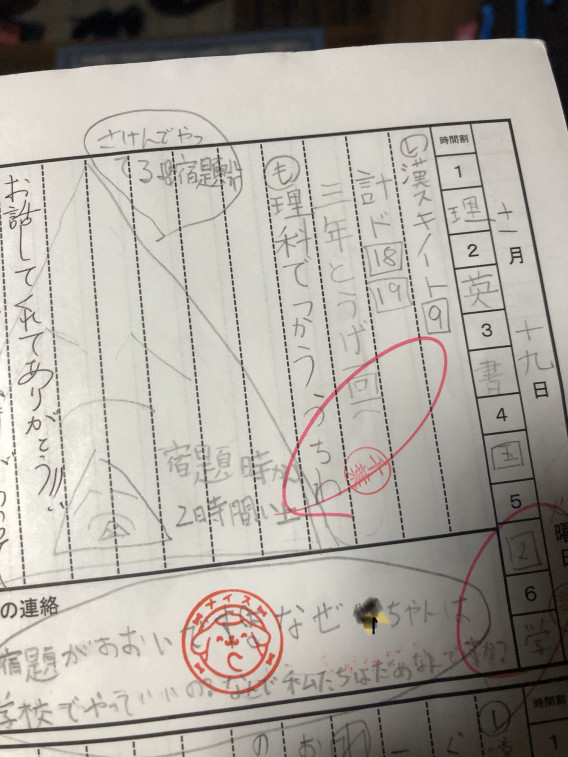 十一月
十九日
曜日
時間割
1
理
2
英
3
書
4
国
5
6
学
し 漢スキノート 9
計ド 18 19
三年とうげ
も 理科でつかううちわ
さけんでやっ
てる 宿題
宿題時が
2時間い上
お話してくれてありがとう!!!
の連絡
ナイス
なぜ
ちゃんは
宿題がおおい
学校でやっていいの?なんで私たちはだめなんですか?
時間割
1
し